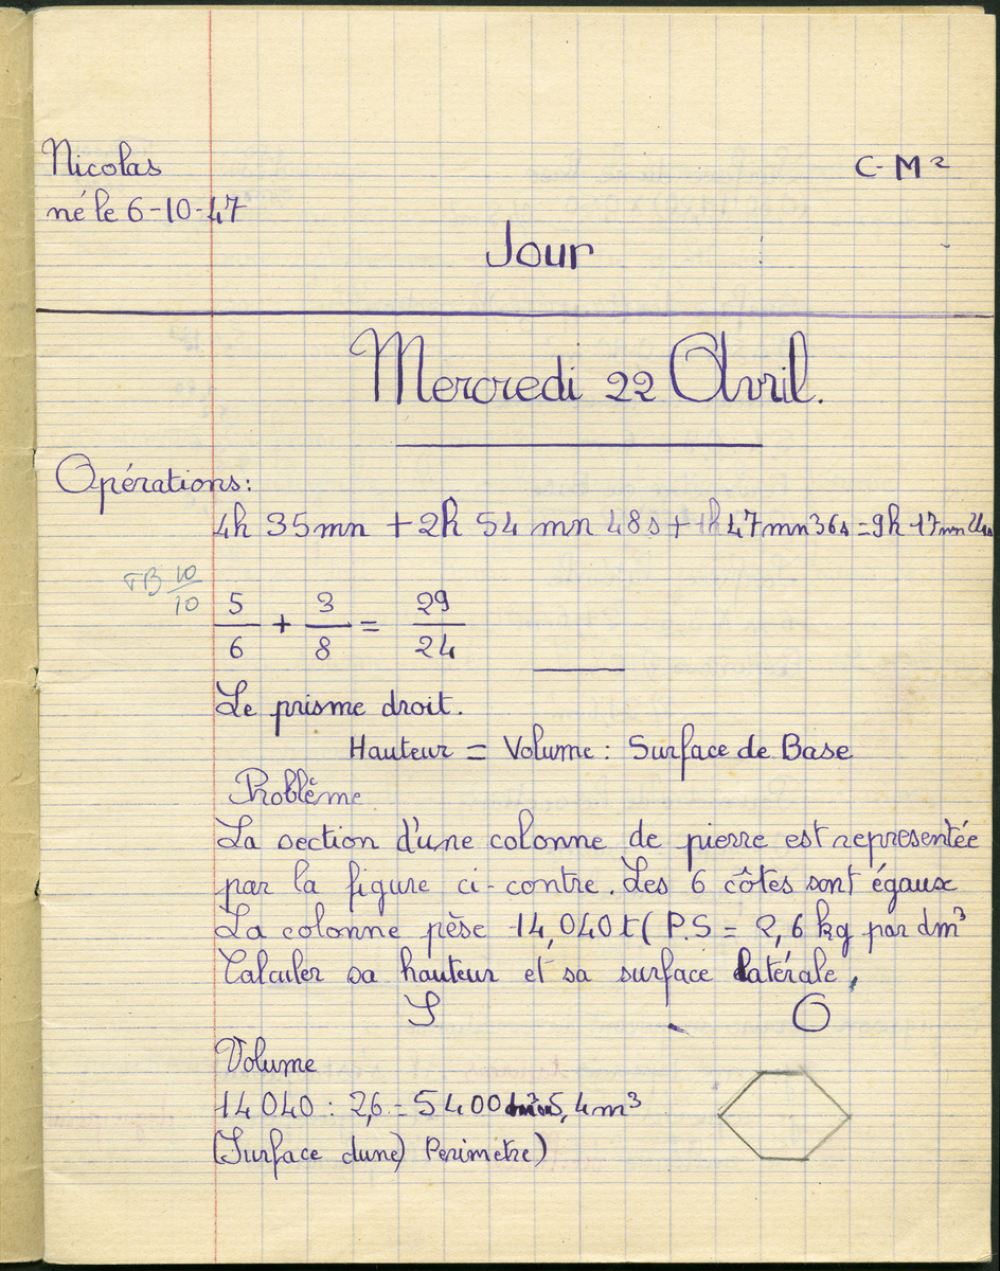 Nicolas
C-M2
né le 6-10-47
Jour
Mercredi 22 Avril.
Opérations:
4h 35mn + 2h 54 mn 48s + 1h 47mn 36s = 9h 17mn 24s
TB 10/10
5/6 + 3/8 = 29/24
Le prisme droit.
Hauteur = Volume : Surface de Base
Problème
La section d'une colonne de pierre est representée
par la figure ci-contre. Les 6 côtes sont égaux
La colonne pèse 14,040t (P.S = 2,6 kg par dm³
Calculer sa hauteur et sa surface latérale,
S O
Volume
14 040 : 2,6 = 5400 5,4m³
(Surface dune) Perimètre)